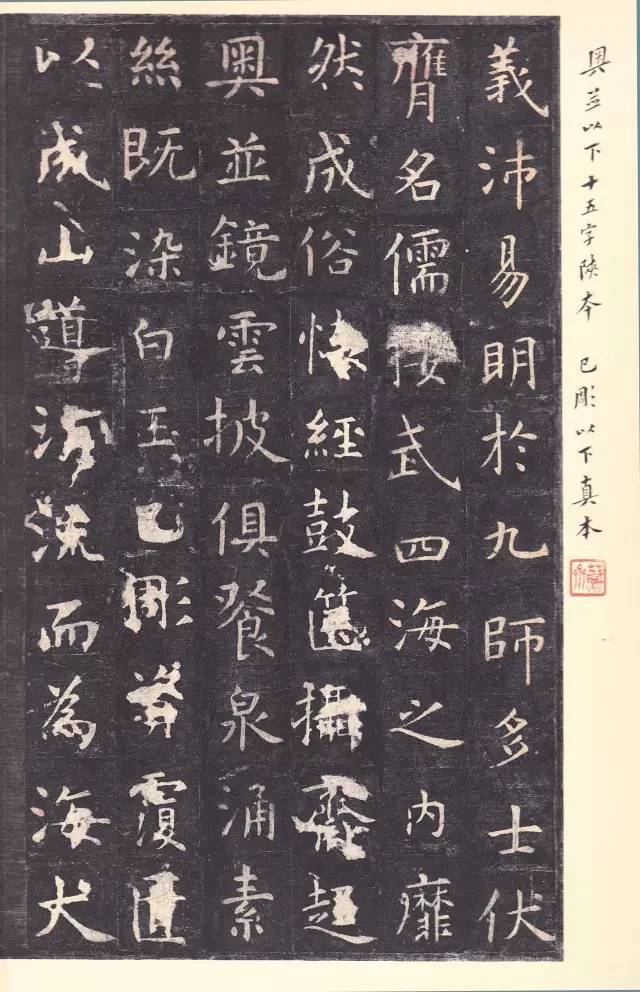 奧並以下十五字陝本 已彫以下真本
義沛易明於九師多士伏
膺名儒接武四海之內靡
然成俗懷經鼓篋攝齋趍
奧並鏡雲披俱餐泉涌素
絲既染白玉已彫資覆匱
以成山導涓流而為海大